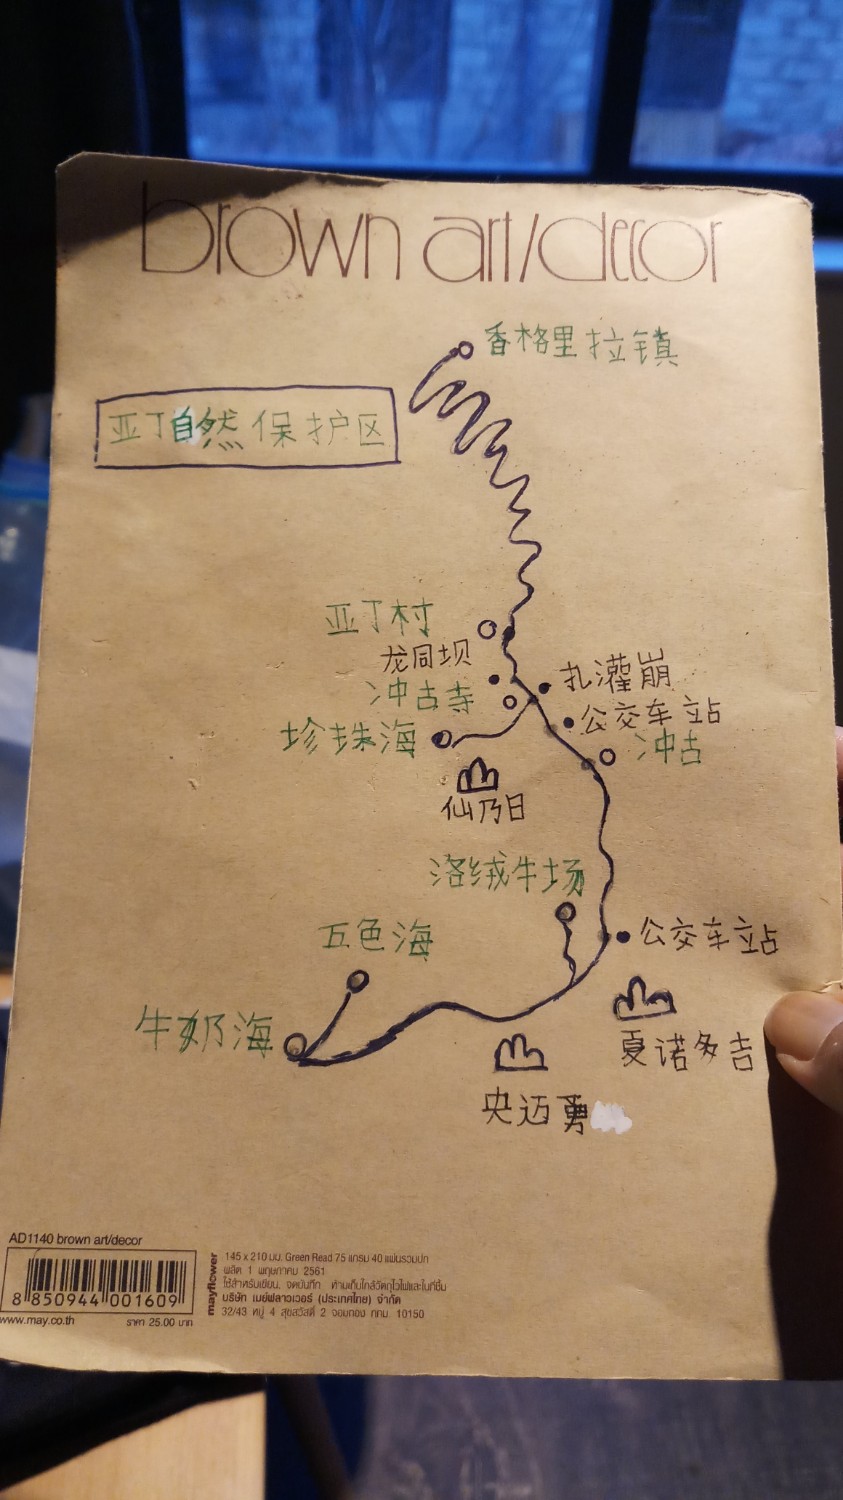 brown art/decor
香格里拉镇
亚丁自然保护区
亚丁村
龙同坝
扎灌崩
冲古寺
公交车站
珍珠海
冲古
仙乃日
洛绒牛场
五色海
公交车站
牛奶海
夏诺多吉
央迈勇
AD1140 brown art/decor
8 850944 001609
www.may.co.th
ราคา 25.00 บาท
mayflower
145 x 210 มม. Green Read 75 แกรม 40 แผ่นรวมปก
ผลิต 1 พฤษภาคม 2561
ใช้สำหรับเขียน, จดบันทึก ห้ามเก็บใกล้วัตถุไวไฟและในที่ชื้น
บริษัท เมย์ฟลาวเวอร์ (ประเทศไทย) จำกัด
32/43 หมู่ 4 สุขสวัสดิ์ 2 จอมทอง กทม. 10150